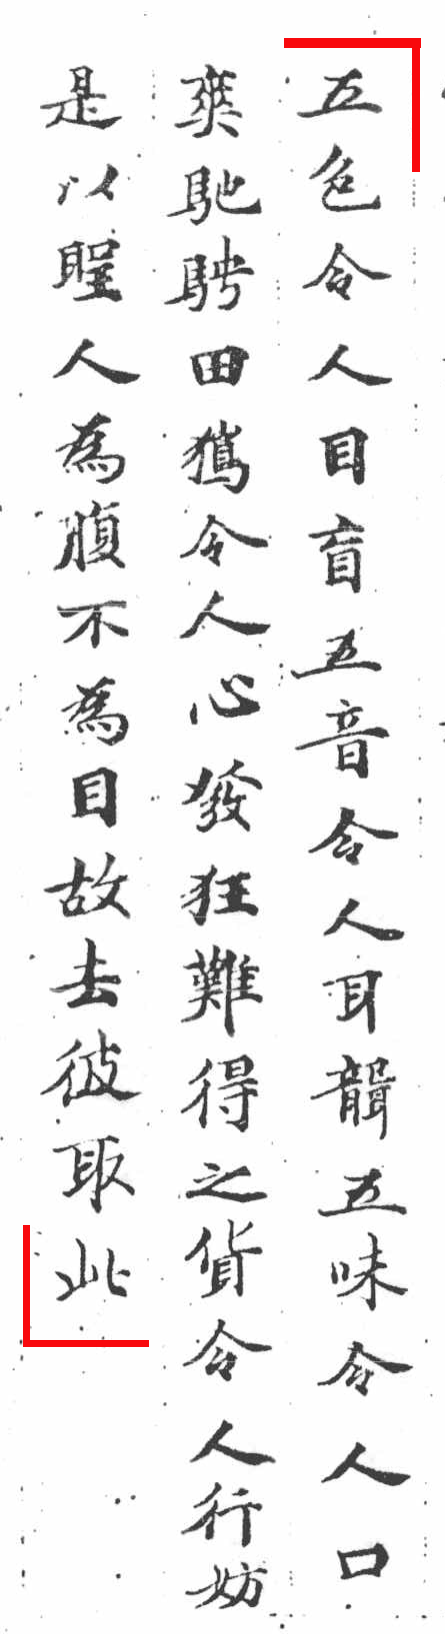 五色令人目盲五音令人耳聾五味令人口
爽馳騁田獦令人心發狂難得之貨令人行妨
是以聖人為腹不為目故去彼取此